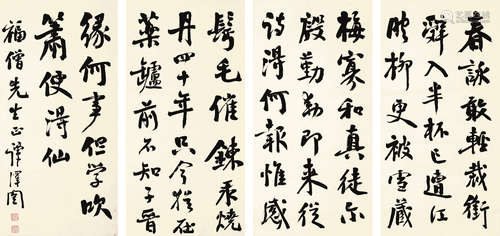 春詠敢輕裁銜
辭入半杯已遭江
映柳更被雪藏
梅寡和真徒尔
殷勤動即来從
詩得何報惟感
鬢毛催鍊汞燒
丹四十年只今猶在
藥鑪前不知子晉
緣何事但學吹
簫便得仙
福僧先生正譚澤闓